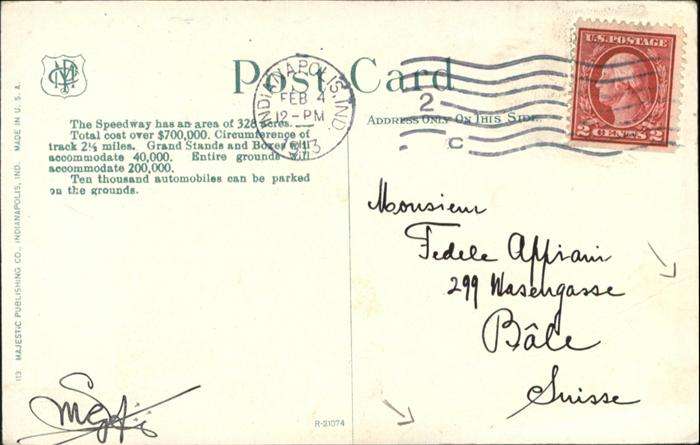 Post Card
INDIANAPOLIS, IND.
FEB 4
12-PM
1913
2
C
U.S. POSTAGE
2 CENTS 2
ADDRESS ONLY ON THIS SIDE.
The Speedway has an area of 328 acres.
Total cost over $700,000. Circumference of
track 2½ miles. Grand Stands and Boxes will
accommodate 40,000. Entire grounds will
accommodate 200,000.
Ten thousand automobiles can be parked
on the grounds.
113 MAJESTIC PUBLISHING CO., INDIANAPOLIS, IND. MADE IN U. S. A.
Monsieur
Fedele Appiani
299 Wasengasse
Bâle
Suisse
R-21074